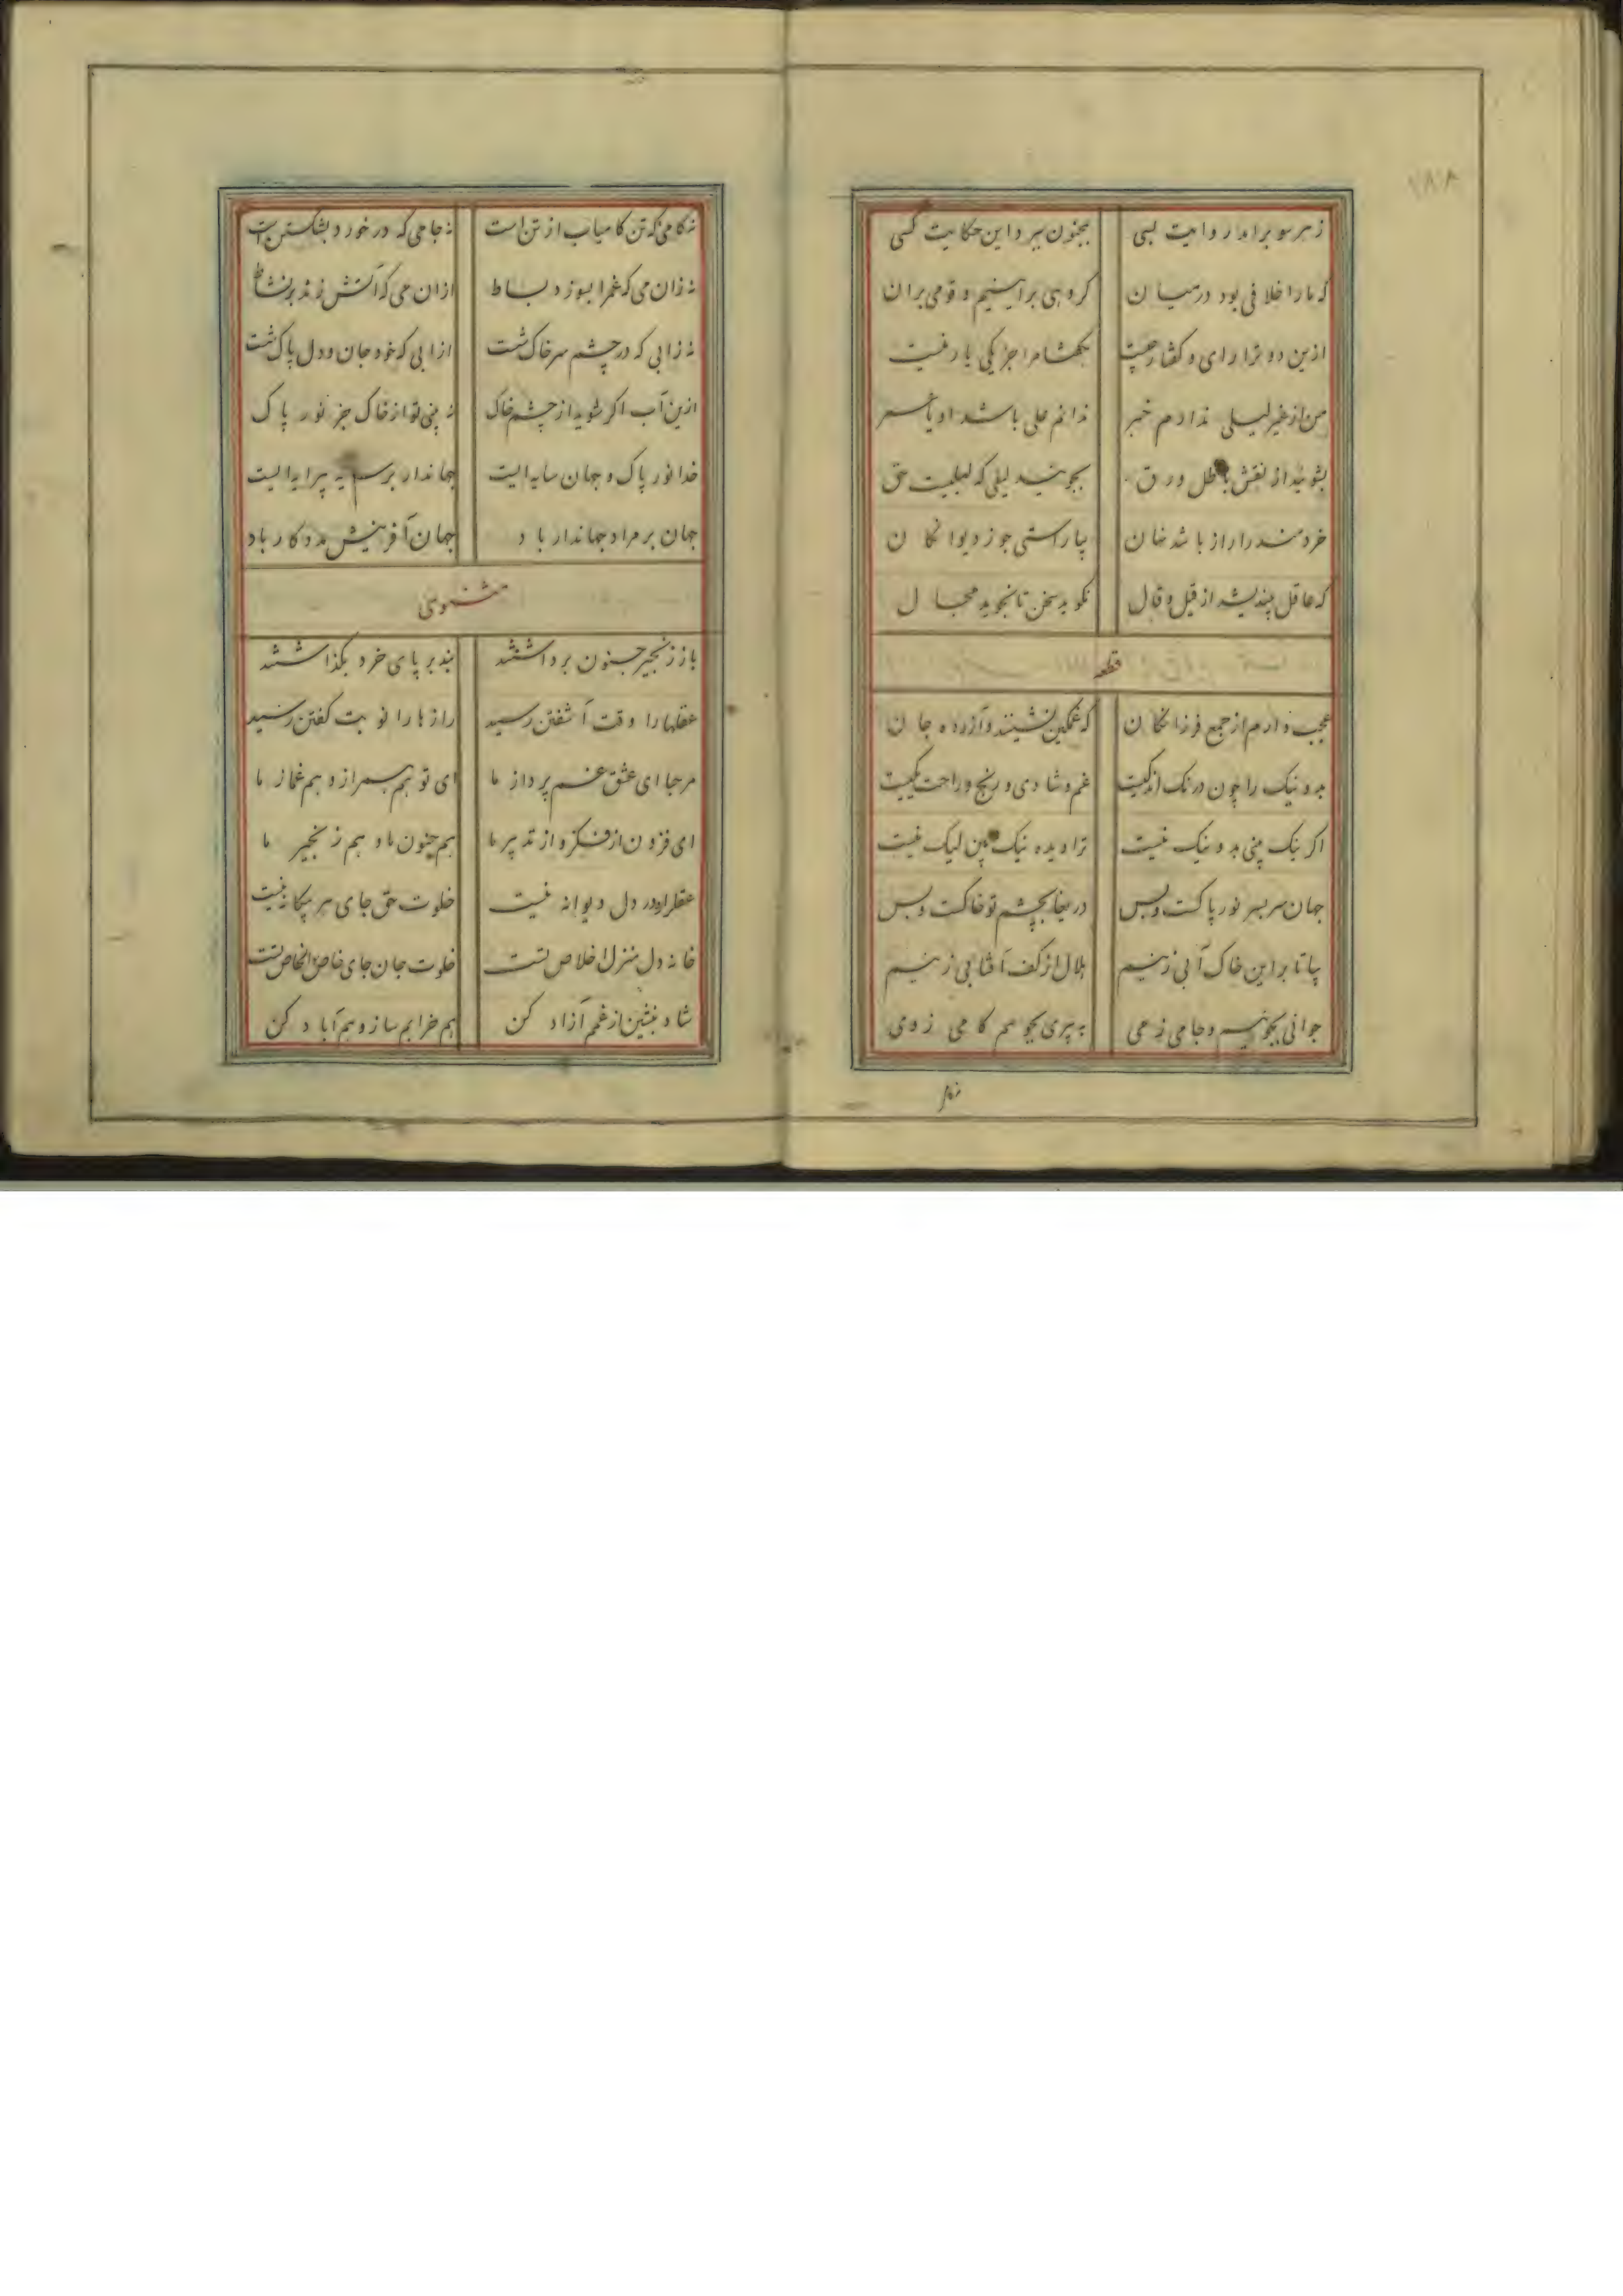 زهر سو برامد روایت بسی بمجنون ببرد این حکایت کسی
که مارا خلافی بود در میان کروهی بر اینیم و قومی بران
ازین دو ترا رای و کفتار چیست بکفتا مرا جز یکی یار نیست
من از غیر لیلی ندارم خبر ندانم علی باشد او یا عمر
بشوئید از نقش باطل ورق بجوئید لیلی که لیلیت حق
خردمند را راز باشد نهان بیا راستی جو ز دیوانکان
که عاقل بیندیشد از قیل و قال نکوید سخن تا نجوید مجال
قطعه
عجب دارم از جمع فرزانکان که غمکین نشینند و آزرده جان
بد و نیک را چون درنک اندکیست غم و شادی و رنج و راحت یکیست
اکر نیک بینی بد و نیک نیست ترا دیده نیک بین لیک نیست
جهان سر بسر نور پاکست و بس دریغا بچشم تو خاکست و بس
بیا تا بر این خاک آبی زنیم هلال از کف آفتابی زنیم
جوانی بجوئیم و جامی ز می به پیری بجو هم کامی ز وی
نه کامی که تن کامیاب از تن است نه جامی که در خورد بشکستن است
نه زان می که غمرا بسوزد بساط ازان می که آتش زند بر نشاط
نه زابی که در چشم سر خاک شت ازابی که خود جان و دل پاک شت
ازین آب اکر شوید از چشم خاک نه بینی تو از خاک جز نور پاک
خدا نور پاک و جهان سایه ایست جهاندار بر سایه پیرایه ایست
جهان بر مراد جهاندار باد جهان آفرینیش مددکار باد
مثنوی
باز زنجیر جنون برداشتند بند بر پای خرد بگذاشتند
عقلها را وقت آشفتن رسید رازها را نوبت کفتن رسید
مرحبا ای عشق غم پرداز ما ای تو هم همراز و هم غماز ما
ای فزون از فکر و از تدبیر ما هم جنون ما و هم زنجیر ما
عقل را ره در دل دیوانه نیست خلوت حق جای هر بیکانه نیست
خانه دل منزل اخلاص تست خلوت جان جای خاص الخاص تست
شاد بنشین از غم آزاد کن هم خرابم ساز و هم آباد کن